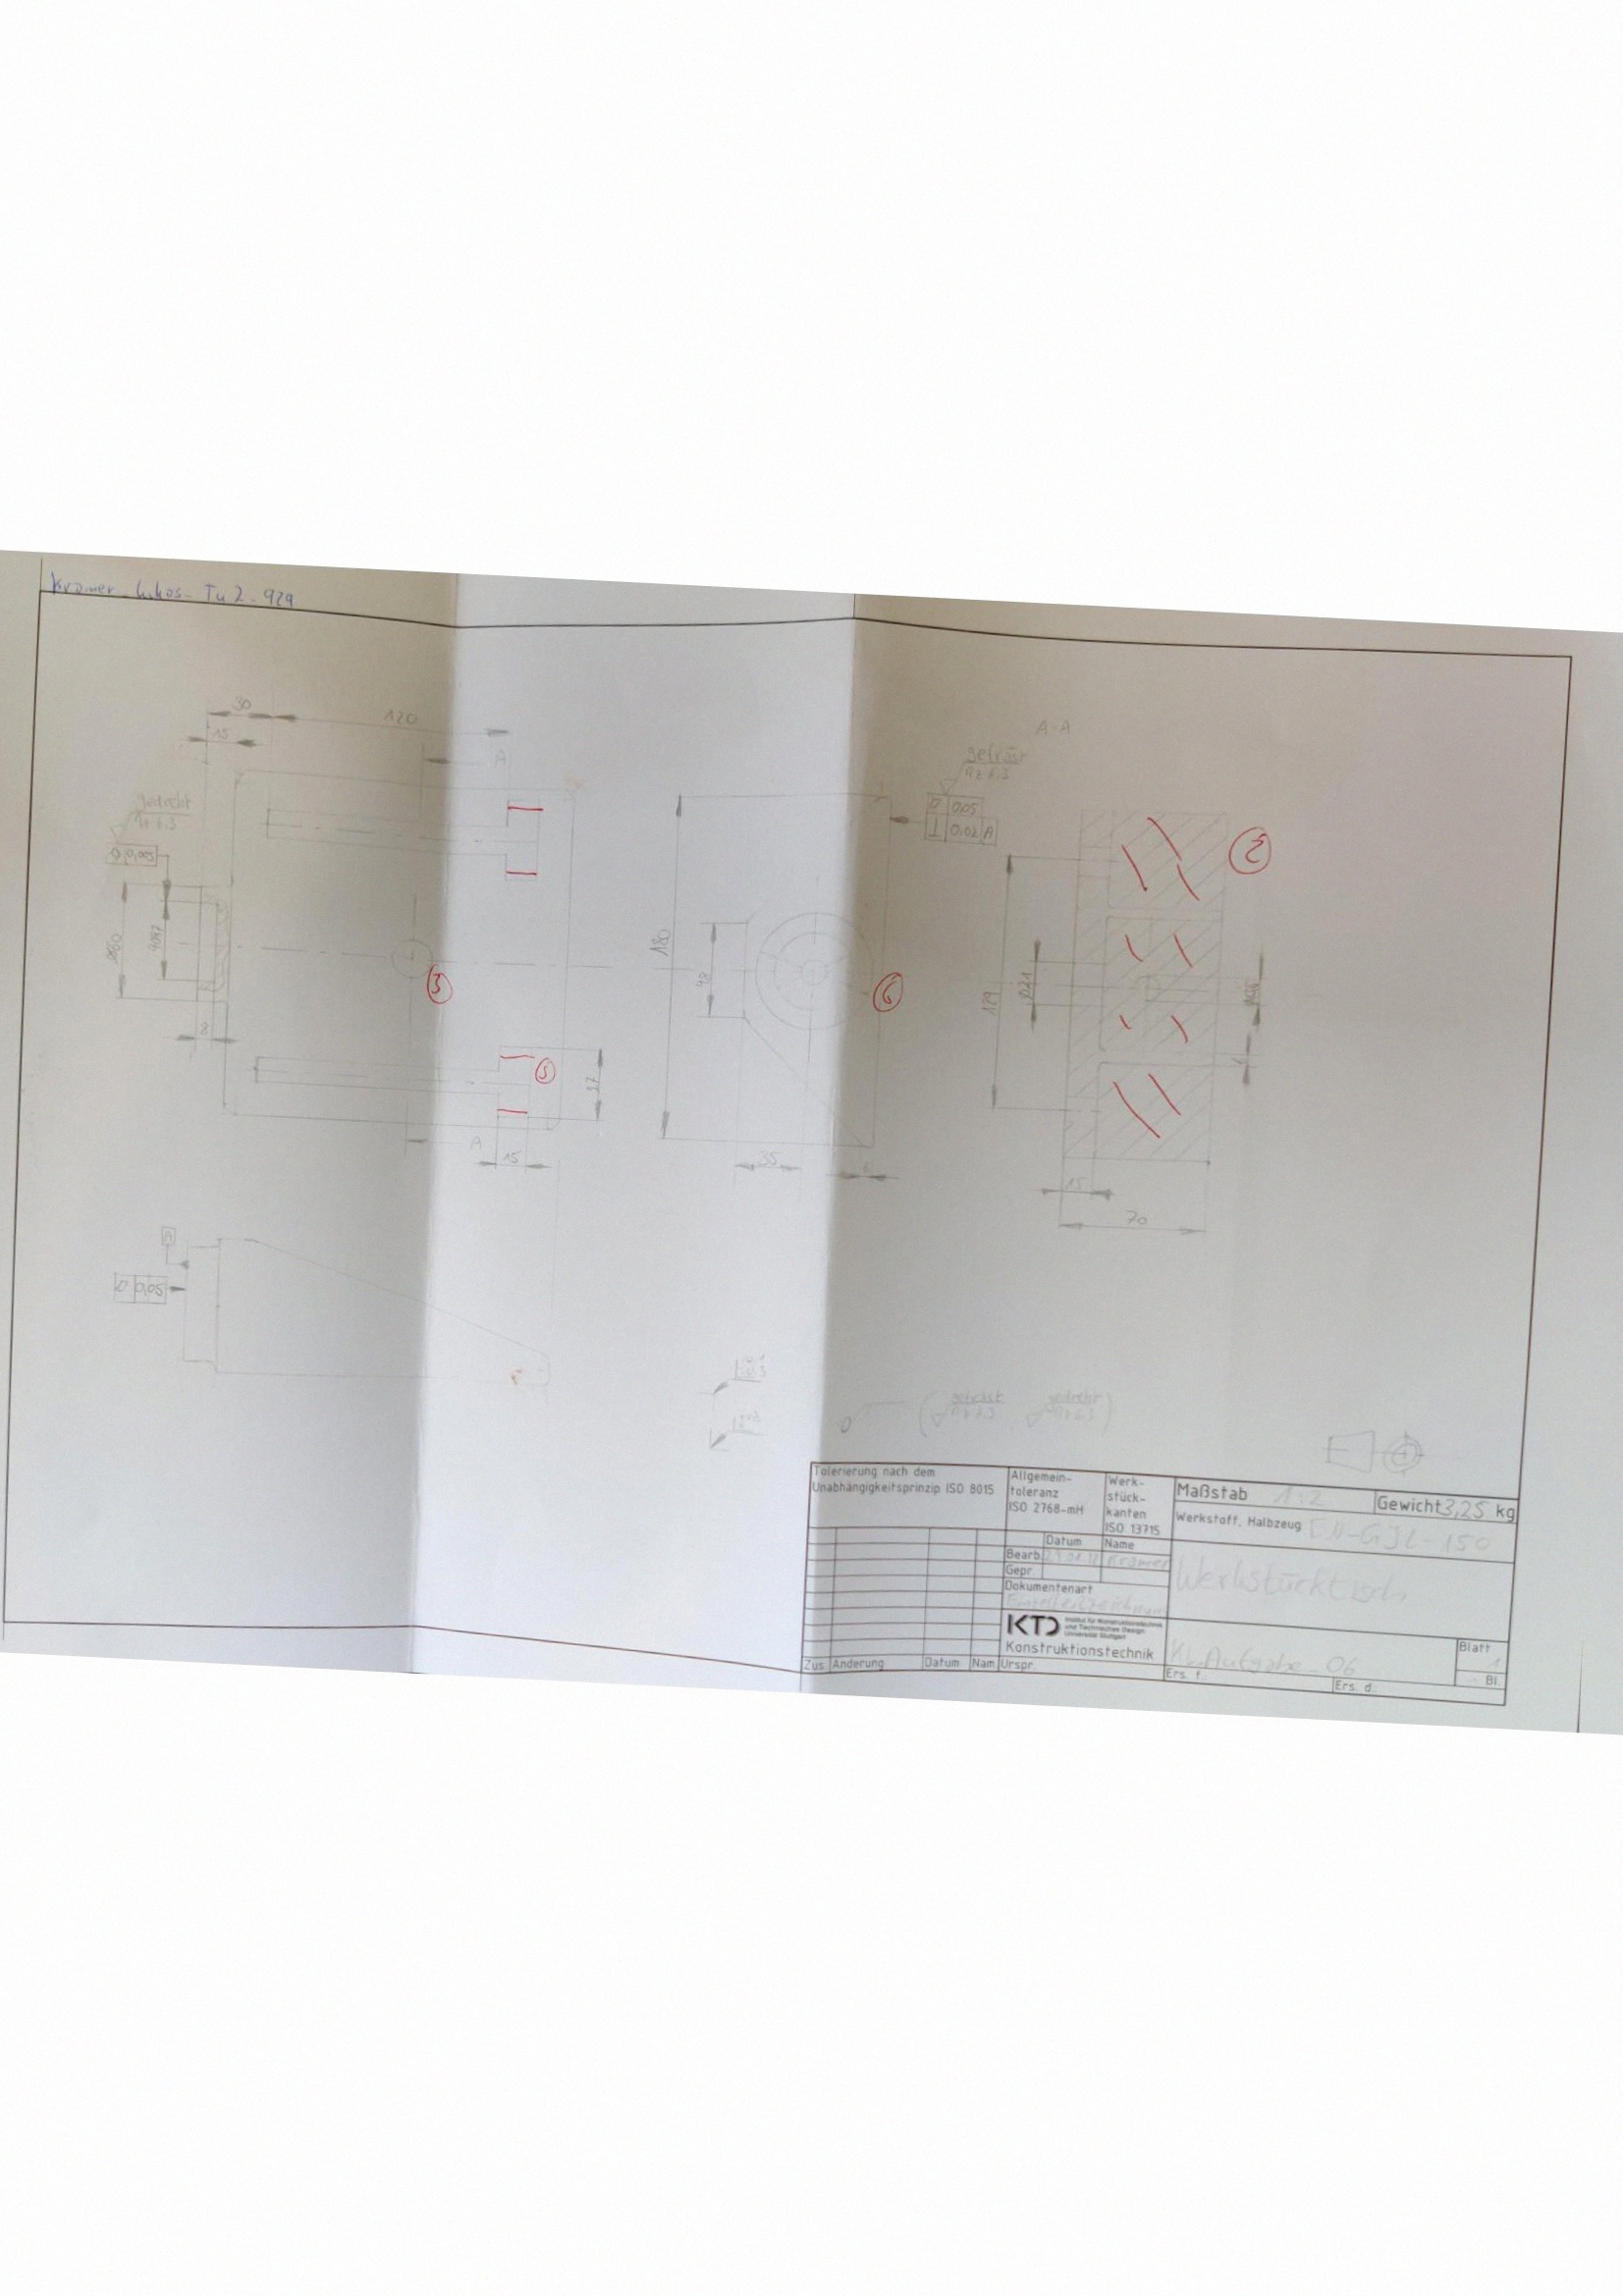 Kramer_Lukas_Tu2_929
30
120
15
A
gedreht
Rz 6.3
0,005
Ø60
8
A
15
37
3
5
180
48
35
6
A-A
gefräst
Rz 6.3
0,05
0,02 A
2
129
Ø21
15
70
A
0,05
gefräst
Rz 6.3
gedreht
Rz 6.3
Tolerierung nach dem
Unabhängigkeitsprinzip ISO 8015
Allgemein-
toleranz
ISO 2768-mH
Werk-
stück-
kanten
ISO 13715
Maßstab 1:2
Gewicht 3,25 kg
Werkstoff, Halbzeug EN-GJL-150
Datum
Name
Bearb. Kramer
Gepr.
Werkstücktisch
Dokumentenart
Einzelteilzeichnung
KTD
Institut für Konstruktionstechnik
und Technisches Design
Universität Stuttgart
Konstruktionstechnik
KL_Aufgabe_06
Blatt
1
Bl.
Zus. Änderung
Datum
Nam.
Urspr.
Ers. f.
Ers. d.